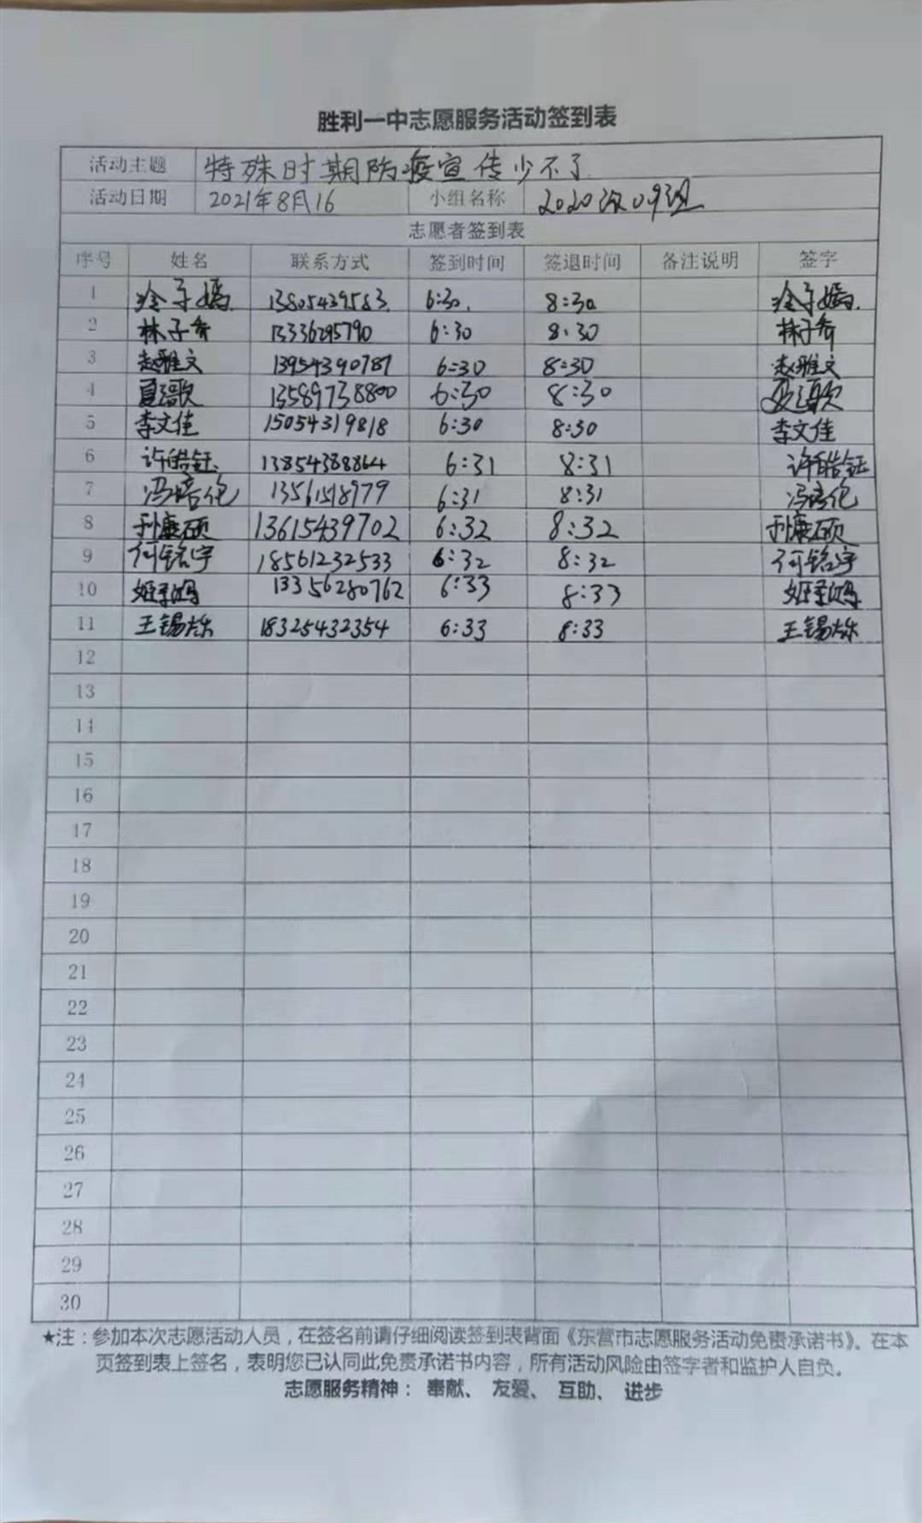 胜利一中志愿服务活动签到表
活动主题 特殊时期防疫宣传少不了
活动日期 2021年8月16 小组名称 2020级09班
志愿者签到表
序号 姓名 联系方式 签到时间 签退时间 备注说明 签字
1 13805439583. 6:30. 8:30
2 林子乔 13336295790 6:30 8:30 林子乔
3 赵雅文 13954390787 6:30 8:30 赵雅文
4 13589738800 6:30 8:30
5 李文佳 15054319818 6:30 8:30 李文佳
6 许皓钰 13854388864 6:31 8:31 许皓钰
7 冯培伦 6:31 8:31 冯培伦
8 孙康硕 13615439702 6:32 8:32 孙康硕
9 何铭宇 18561232533 6:32 8:32 何铭宇
10 13356280762 6:33 8:33
11 王锡烁 18325432354 6:33 8:33 王锡烁
12
13
14
15
16
17
18
19
20
21
22
23
24
25
26
27
28
29
30
★注：参加本次志愿活动人员，在签名前请仔细阅读签到表背面《东营市志愿服务活动免责承诺书》。在本
页签到表上签名，表明您已认同此免责承诺书内容，所有活动风险由签字者和监护人自负。
志愿服务精神： 奉献、 友爱、 互助、 进步